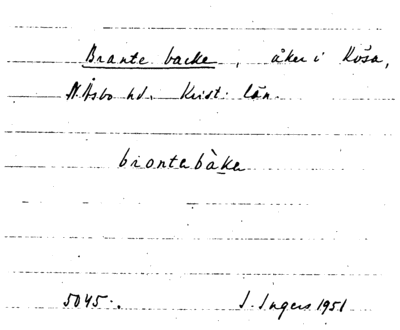 Brante backe, åker i Kösa,
N. Åsbo hd. Krist. län.
brontabàka
5045. I. Ingers 1951